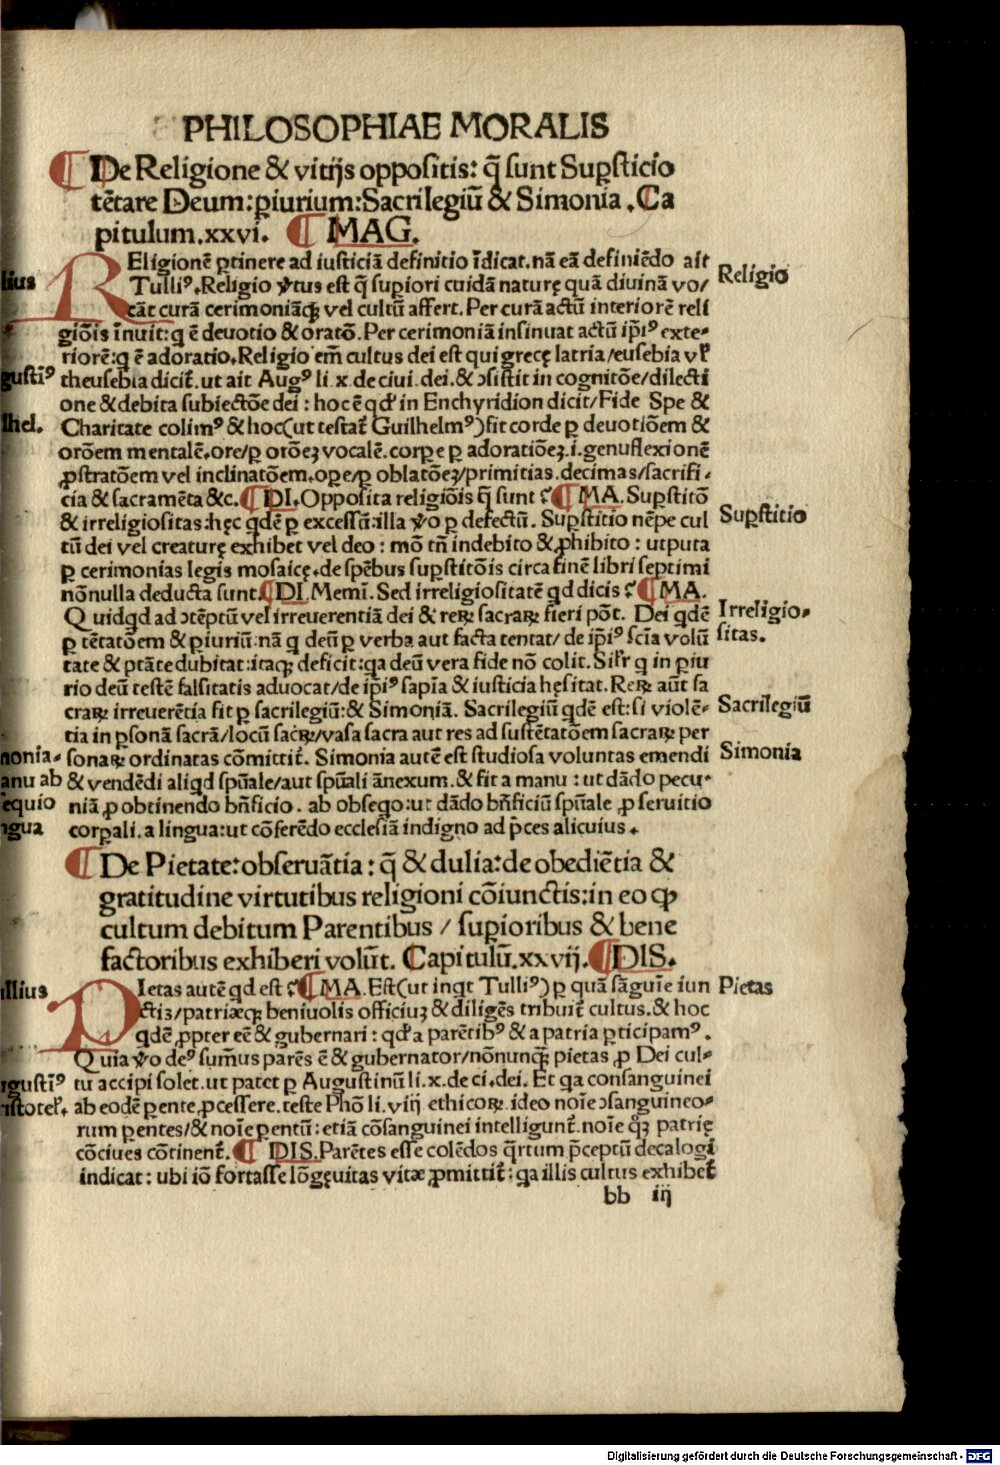 PHILOSOPHIAE MORALIS
¶ De Religione & vitijs oppositis: q̄ sunt Sup̱sticio
tētare Deum: ꝑiurium: Sacrilegiū & Simonia. Ca
pitulum.xxvi. ¶ MAG.
REligionē ꝑtinere ad iusticiā definitio īdicat. nā eā definiēdo ait
Tulliꝰ. Religio v̓tus est q̄ suꝑiori cuidā naturę quā diuinā vo/
cāt curā cerimoniāqꝫ vel cultū affert. Per curā actū interiorē reli
giōis īnuit: q ē deuotio & oratō. Per cerimoniā insinuat actū ip̄iꝰ exte-
riorē: q ē adoratio. Religio em̄ cultus dei est qui grecę latria/eusebia vl̓
theusebia dicit̄. ut ait Augꝰ li.x.de ciui.dei. & ɔsistit in cognitōe/dilecti
one & debita subiectōe dei: hoc ē qd̓ in Enchyridion dicit/Fide Spe &
Charitate colimꝰ & hoc(ut testat̄ Guilhelmꝰ)fit corde ꝑ deuotiōem &
orōem mentalē. ore/ꝑ orōeꝫ vocalē. corꝑe ꝑ adoratiōeꝫ.i.genuflexionē
ꝓstratōem vel inclinatōem. oꝑe/ꝑ oblatōeꝫ/primitias. decimas/sacrifi-
cia & sacramēta &c. ¶ DI. Opposita religiōis q̄ sunt? ¶ MA. Suꝑstitō
& irreligiositas: hęc qdē ꝑ excessū: illa v̓o ꝑ defectū. Suꝑstitio nēpe cul
tū dei vel creaturę exhibet vel deo: mō tn̄ indebito & ꝓhibito: utputa
ꝑ cerimonias legis mosaicę. de spēbus suꝑstitōis circa finē libri septimi
nōnulla deducta sunt. ¶ DI. Memī. Sed irreligiositatē qd dicis? ¶ MA.
Quidqd ad ɔtēptū vel irreuerentiā dei & reꝝ sacraꝝ fieri pōt. Dei qdē
ꝑ tētatōem & ꝑiuriū: nā q deū ꝑ verba aut facta tentat/ de ip̄iꝰ scīa volū
tate & ptāte dubitat: itaqꝫ deficit: qa deū vera fide nō colit. Sil̓r q in ꝑiu
rio deū testē falsitatis aduocat/de ip̄iꝰ sapīa & iusticia hęsitat. Reꝝ aūt sa
craꝝ irreuerētia fit ꝑ sacrilegiū: & Simoniā. Sacrilegiū qdē est: si violē-
tia in ꝑsonā sacrā/locū sacꝝ/vasa sacra aut res ad sustētatōem sacraꝝ per
sonaꝝ ordinatas cōmittit̄. Simonia autē est studiosa voluntas emendi
& vendēdi aliqd spūale/aut spūali ānexum. & fit a manu: ut dādo pecu-
niā ꝓ obtinendo bn̄ficio. ab obseqo: ut dādo bn̄ficiū spūale ꝓ seruitio
corꝑali. a lingua: ut cōferēdo ecclesiā indigno ad p̄ces alicuius.
¶ De Pietate: obseruātia: q̄ & dulia: de obediētia &
gratitudine virtutibus religioni cōiunctis: in eo ꝙ
cultum debitum Parentibus / suꝑioribus & bene
factoribus exhiberi volūt. Capitulū.xxvij. ¶ DIS.
PIetas autē qd est? ¶ MA. Est(ut inqt Tulliꝰ)ꝑ quā sāguīe iun
ctis/patriæqꝫ beniuolis officiuꝫ & diligēs tribuit̄ cultus. & hoc
qdē ꝓpter eē & gubernari: qd̓ a parētibꝰ & a patria ꝑticipamꝰ.
Quia v̓o deꝰ sum̄us parēs ē & gubernator/nōnunqꝫ pietas ꝓ Dei cul-
tu accipi solet. ut patet ꝑ Augustinū li.x.de ci.dei. Et qa consanguinei
ab eodē ꝑente ꝓcessere. teste Phō li.viij ethicoꝝ. ideo noīe ɔsanguineo-
rum ꝑentes/& noīe ꝑentū: etiā cōsanguinei intelligunt̄. noīe qꝫ patrię
cōciues cōtinent̄. ¶ DIS. Parētes esse colēdos q̄rtum p̄ceptū decalogi
indicat: ubi iō fortasse lōgęuitas vitæ ꝓmittit̄: qa illis cultus exhibet̄
bb iij
Religio
Suꝑstitio
Irreligio-
sitas.
Sacrilegiū
Simonia
Pietas